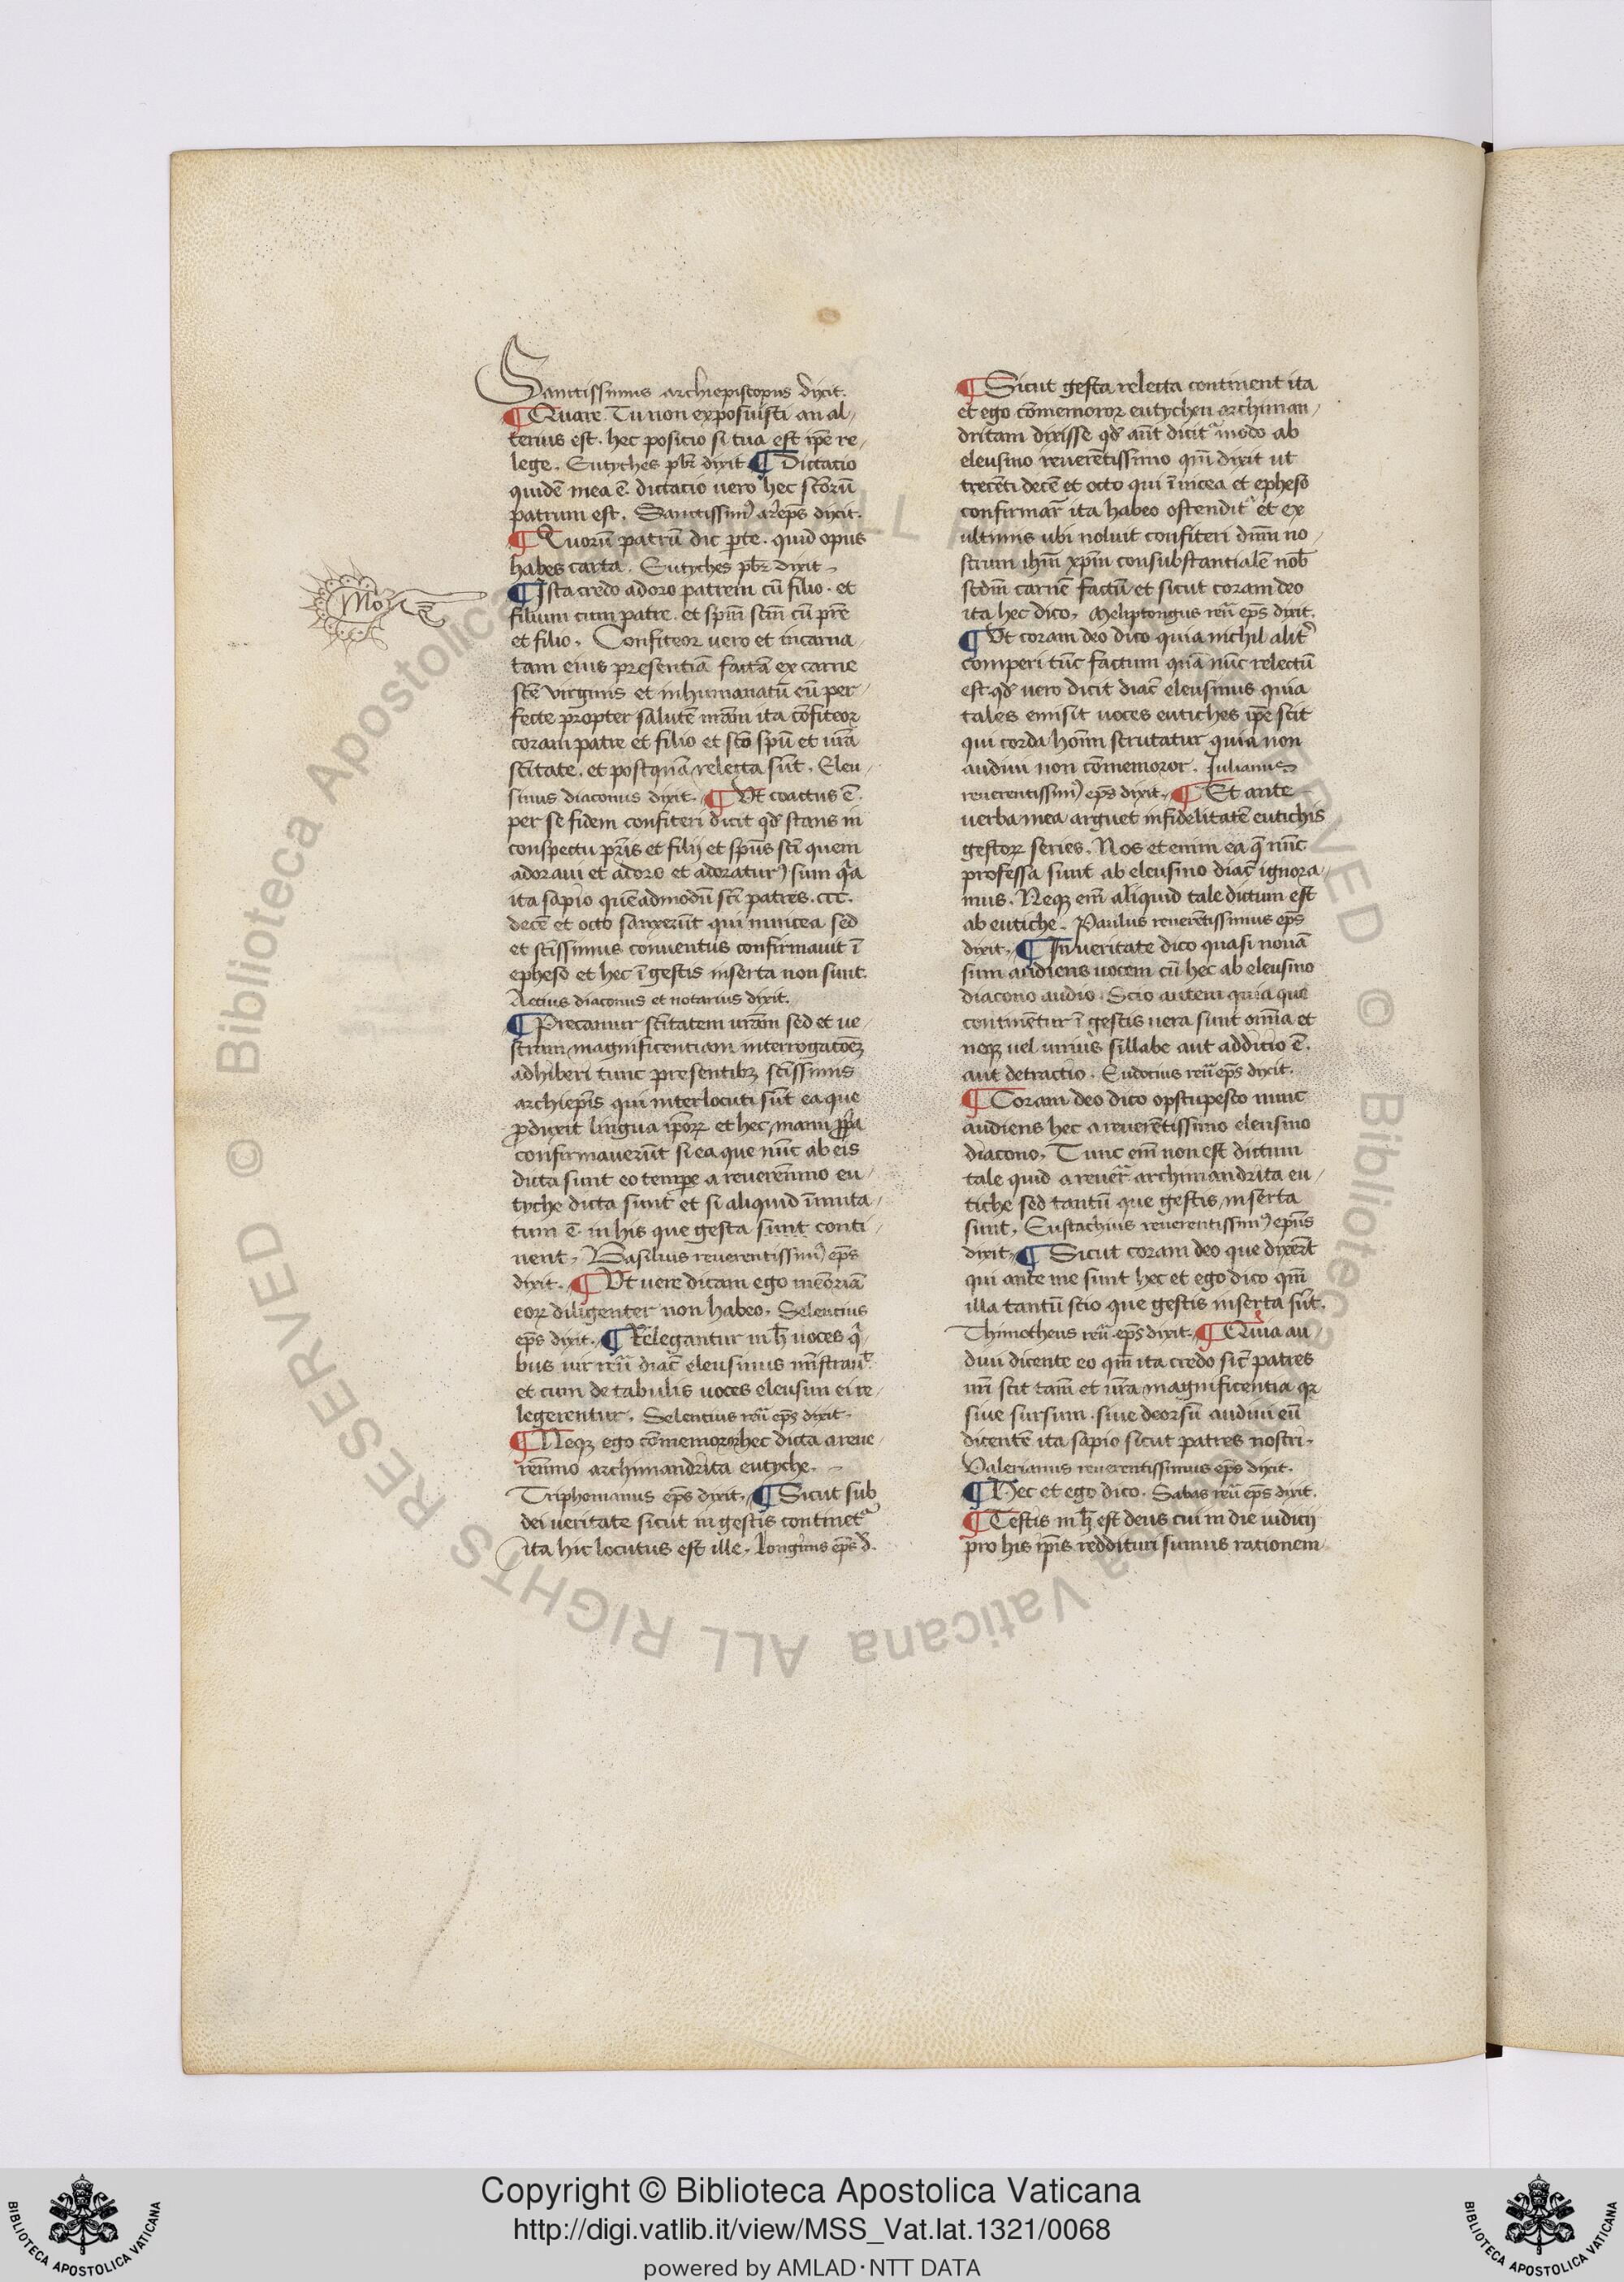 Sanctissimus archiepiscopus dixit.
¶ Quare Tu non exposuisti an al/
terius est. hec posicio si tua est ip̄e re/
lege. Eutyches pbr̄ dixit ¶ Dictatio
quidē mea ē. dictacio uero hec sctōrū
patrum est. Sanctissimꝰ arēps dixit.
¶ Quorū patrū dic p̄te. quid opus
habes carta. Eutyches pbr̄ dixit
¶ Ista credo adoro patrem cū filio. et
filium cum patre. et spm̄ scm̄ cū pr̄e
et filio. Confiteor uero et incarna/
tam eius presentiā factā ex carne
scē virginis et inhumanatū eū per/
fecte propter salutē nrām ita cōfiteor
coram patre et filio et sc̄o spū et ur̄a
sc̄itate. et postquā relecta sūt. Eleu/
sinus diaconus dixit. ¶ Vt coactus ē.
per se fidem confiteri dicit qđ stans in
conspectu pr̄is et filij et spūs sc̄i quem
adoraui et adoro et adoraturꝰ sum
ita sapio quēadmodū sc̄i patres. ccc.
decē et octo sanxerūt qui in nicea sed
et sc̄issimus conuentus confirmauit ī
epheso et hec ī gestis inserta non sunt.
Aetius diaconus et notarius dixit.
¶ Precamur sc̄itatem ur̄am sed et ue/
stram magnificentiam interrogatōeꝫ
adhiberi tunc presentibꝫ sc̄issimis
archiepīs qui interlocuti sūt ea que
ꝓduxit lingua ip̄oꝝ et hec manu ꝓp̄a
confirmauerūt si ea que nūc ab eis
dicta sunt eo tempe a reuerenmo eu/
tyche dicta sunt et si aliquid īmuta/
tum ē. in his que gesta sunt conti/
nent. Basilius reuerentissimꝰ ep̄s
dixit. ¶ Vt uere dicam ego memoriā
eoꝝ diligenter non habeo. Seleucius
ep̄s dixit. ¶ Relegantur in h̄ uoces q̄/
bus uir reū diac̄ eleusinus
et cum de tabulis uoces eleusini ei re/
legerentur. Seleucius reū ep̄s dixit.
¶ Neqꝫ ego cōmemoror hec dicta a reue/
renmo archimandrita eutyche.
Triphomanus ep̄s dixit. ¶ Sicut sub
dei ueritate sicut in gestis continetᷣ
ita hic locutus est ille. Longinus ep̄s đ.
¶ Sicut gesta relecta continent ita
et ego cōmemoror eutychen archiman/
dritam dixisse qđ aūt dicitᷣ modo ab
eleusino reuerētissimo qm̄ dixit ut
trecēti decē et octo qui ī nicea et epheso
confirmar̄ ita habeo ostenditᷣ et ex
ultimis ubi noluit confiteri dnm̄ no/
strum ihm̄ xpm̄ consubstantialē nob̄
scdm̄ carnē factū et sicut coram deo
ita hec dico. Meliptongus reū ep̄s dixit.
¶ Vt coram deo dico quia nichil alit̄
comperi tūc factum quā nūc relectū
est. qđ uero dicit diac̄ eleusinus quia
tales emisit uoces eutiches ip̄e scit
qui corda hom̄ scrutatur quia non
audiui non cōmemoror. Iulianus
reuerentissimꝰ ep̄s dixit. ¶ Et ante
uerba mea arguet infidelitatē eutichis
gestoꝝ series. Nos et enim ea q̄ nūc
professa sunt ab eleusino diac̄ ignora/
mus. Neqꝫ em̄ aliquid tale dictum est
ab eutiche. Paulus reuerētissimus ep̄s
dixit. ¶ In ueritate dico quasi nouā
sum audiens uocem cū hec ab eleusino
diacono audio. Scio autem quia que
continētur ī gestis uera sunt om̄ia et
neqꝫ uel unius sillabe aut additio ē.
aut detractio. Eudocius reū ep̄s dixit.
¶ Coram deo dico opstupesco nunc
audiens hec a reuerētissimo eleusino
diacono. Tunc em̄ non est dictum
tale quid a reuer̄ archimandrita eu/
tiche sed tantū que gestis inserta
sunt. Eustachius reuerentissimꝰ ep̄us
dixit. ¶ Sicut coram deo que dixer̄t
qui ante me sunt hec et ego dico qm̄
illa tantū scio que gestis inserta sūt.
Thimotheus reū ep̄s dixit. ¶ Quia au/
diui dicente eo qm̄ ita credo sic̄ patres
nr̄i scit tam̄ et ur̄a magnificentia
siue sursum. siue deorsū audiui eū
dicentē ita sapio sicut patres nostri.
Valerianus reuerentissimus ep̄s dixit.
¶ Hec et ego dico. Sabas reū ep̄s dixit.
¶ Testis in h̄ est deus cui in die iudicij
pro his ip̄is reddituri sumus rationem
Copyright © Biblioteca Apostolica Vaticana
http://digi.vatlib.it/view/MSS_Vat.lat.1321/0068
powered by AMLAD·NTT DATA
BIBLIOTECA APOSTOLICA VATICANA
BIBLIOTECA APOSTOLICA VATICANA
© Biblioteca Apostolica Vaticana ALL RIGHTS RESERVED